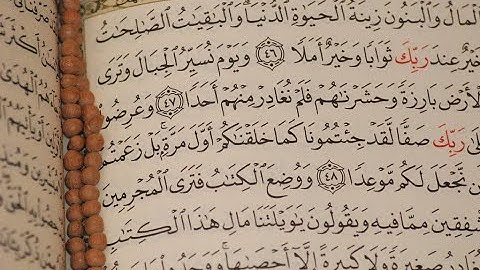 ٱلْمَالُ وَٱلْبَنُونَ زِينَةُ ٱلْحَيَوٰةِ ٱلدُّنْيَا ۖ وَٱلْبَٰقِيَٰتُ ٱلصَّٰلِحَٰتُ
خَيْرٌ عِندَ رَبِّكَ ثَوَابًا وَخَيْرٌ أَمَلًا ٤٦ وَيَوْمَ نُسَيِّرُ ٱلْجِبَالَ وَتَرَى
ٱلْأَرْضَ بَارِزَةً وَحَشَرْنَٰهُمْ فَلَمْ نُغَادِرْ مِنْهُمْ أَحَدًا ٤٧ وَعُرِضُوا۟
عَلَىٰ رَبِّكَ صَفًّا لَّقَدْ جِئْتُمُونَا كَمَا خَلَقْنَٰكُمْ أَوَّلَ مَرَّةٍۭ ۚ بَلْ زَعَمْتُمْ
أَلَّن نَّجْعَلَ لَكُم مَّوْعِدًا ٤٨ وَوُضِعَ ٱلْكِتَٰبُ فَتَرَى ٱلْمُجْرِمِينَ
مُشْفِقِينَ مِمَّا فِيهِ وَيَقُولُونَ يَٰوَيْلَتَنَا مَالِ هَٰذَا ٱلْكِتَٰبِ
صَغِيرَةً وَلَا كَبِيرَةً إِلَّآ أَحْصَىٰهَا ۚ وَوَجَدُوا۟